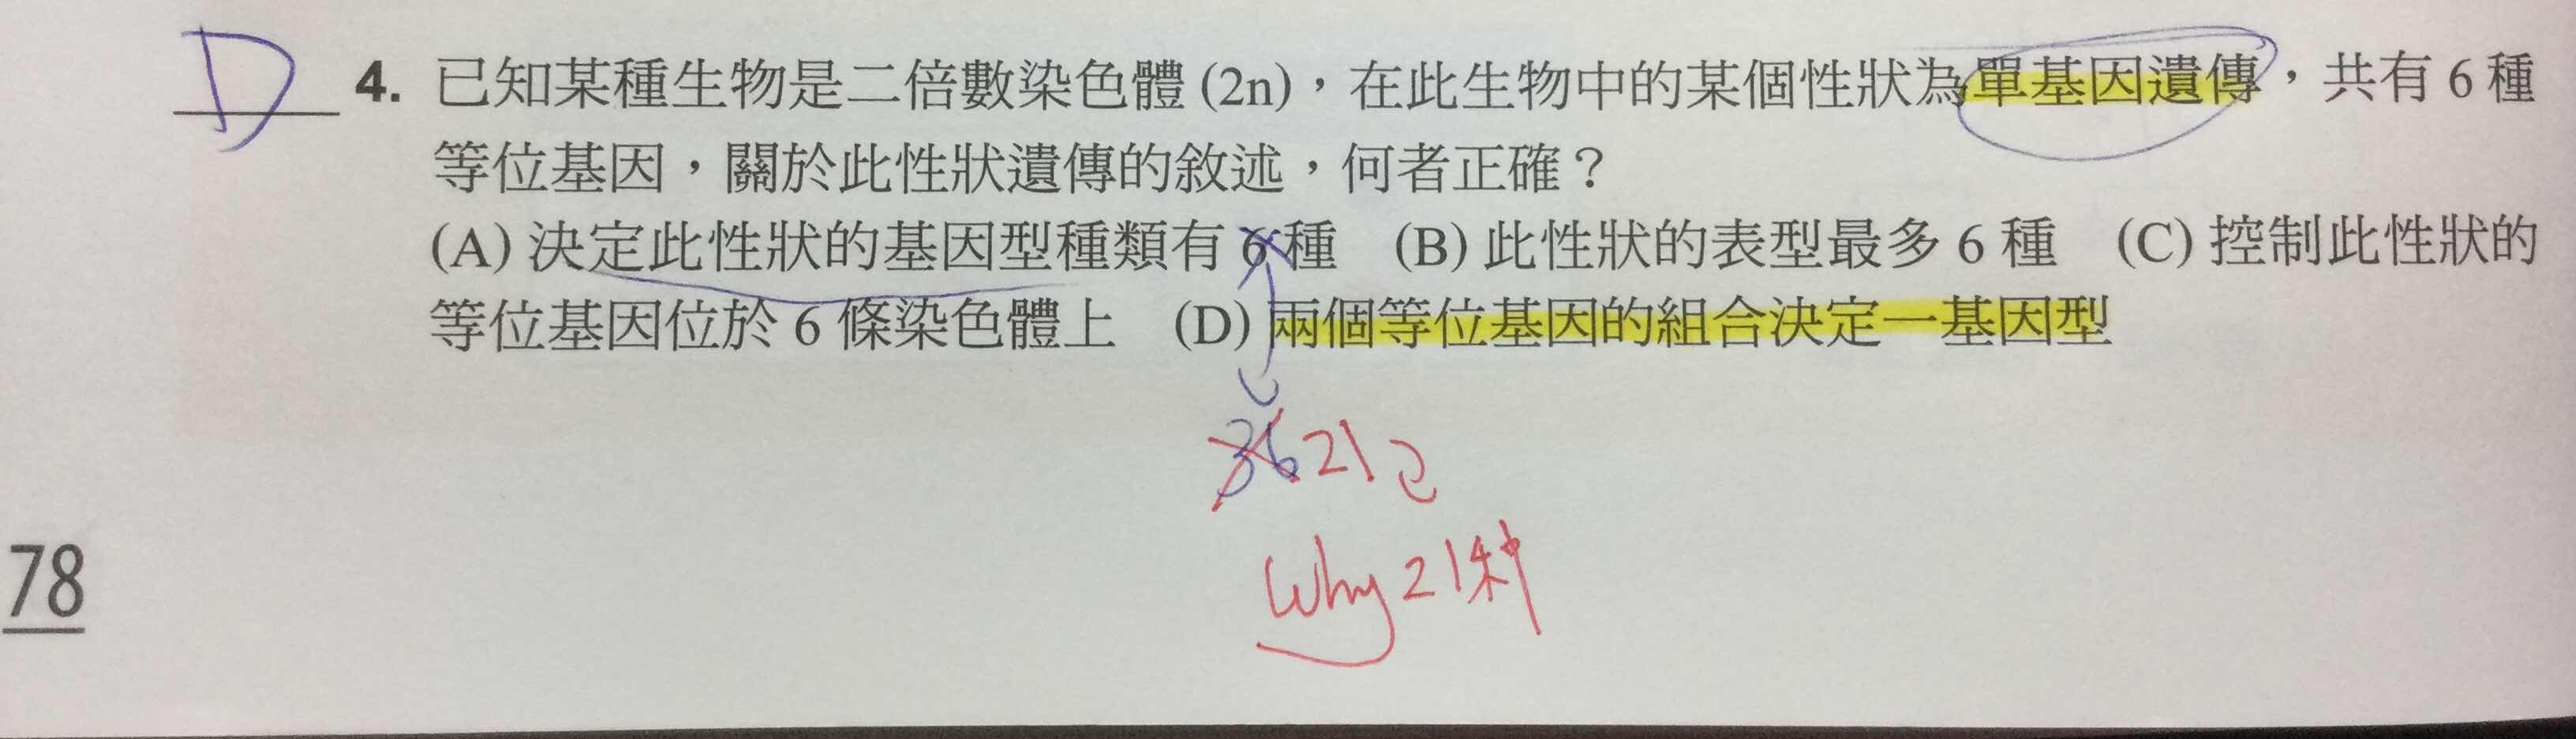 D 4. 已知某種生物是二倍數染色體 (2n)，在此生物中的某個性狀為單基因遺傳，共有 6 種
等位基因，關於此性狀遺傳的敘述，何者正確？
(A) 決定此性狀的基因型種類有 6 種 (B) 此性狀的表型最多 6 種 (C) 控制此性狀的
等位基因位於 6 條染色體上 (D) 兩個等位基因的組合決定一基因型
36 21
Why 21种
78